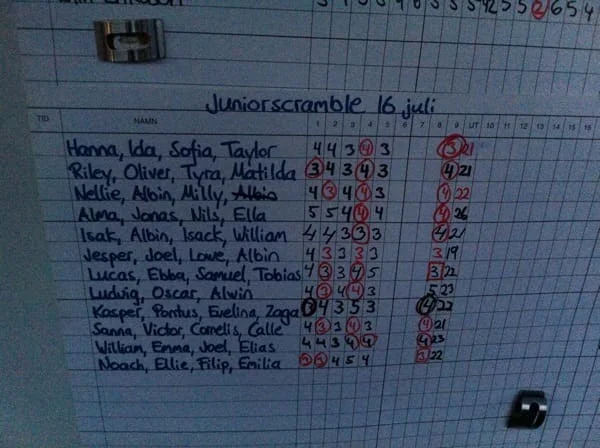 Juniorscramble 16 juli
TID NAMN 1 2 3 4 5 6 7 8 9 UT 10 11 12 13 14 15 16
Hanna, Ida, Sofia, Taylor 4 4 3 4 3 3 21
Riley, Oliver, Tyra, Matilda 3 4 3 4 3 4 21
Nellie, Albin, Milly, 4 3 4 4 3 4 22
Alma, Jonas, Nils, Ella 5 5 4 4 4 4 26
Isak, Albin, Isack, William 4 4 3 3 3 4 21
Jesper, Joel, Lowe, Albin 4 3 3 3 3 3 19
Lucas, Ebba, Samuel, Tobias 4 3 3 4 5 3 22
Ludvig, Oscar, Alwin 4 3 4 4 3 5 23
Kasper, Pontus, Evelina, Zaga 3 4 3 5 3 4 22
Sanna, Victor, Cornelis, Calle 4 3 3 4 3 4 21
William, Emma, Joel, Elias 4 4 3 4 4 4 23
Noach, Ellie, Filip, Emilia 3 3 4 5 4 3 22